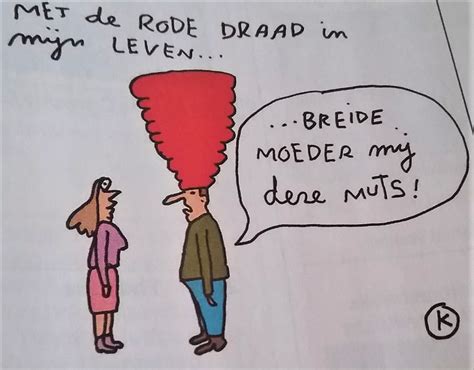 MET de RODE DRAAD in
mijn LEVEN...
...BREIDE..
MOEDER mij
deze MUTS!
K